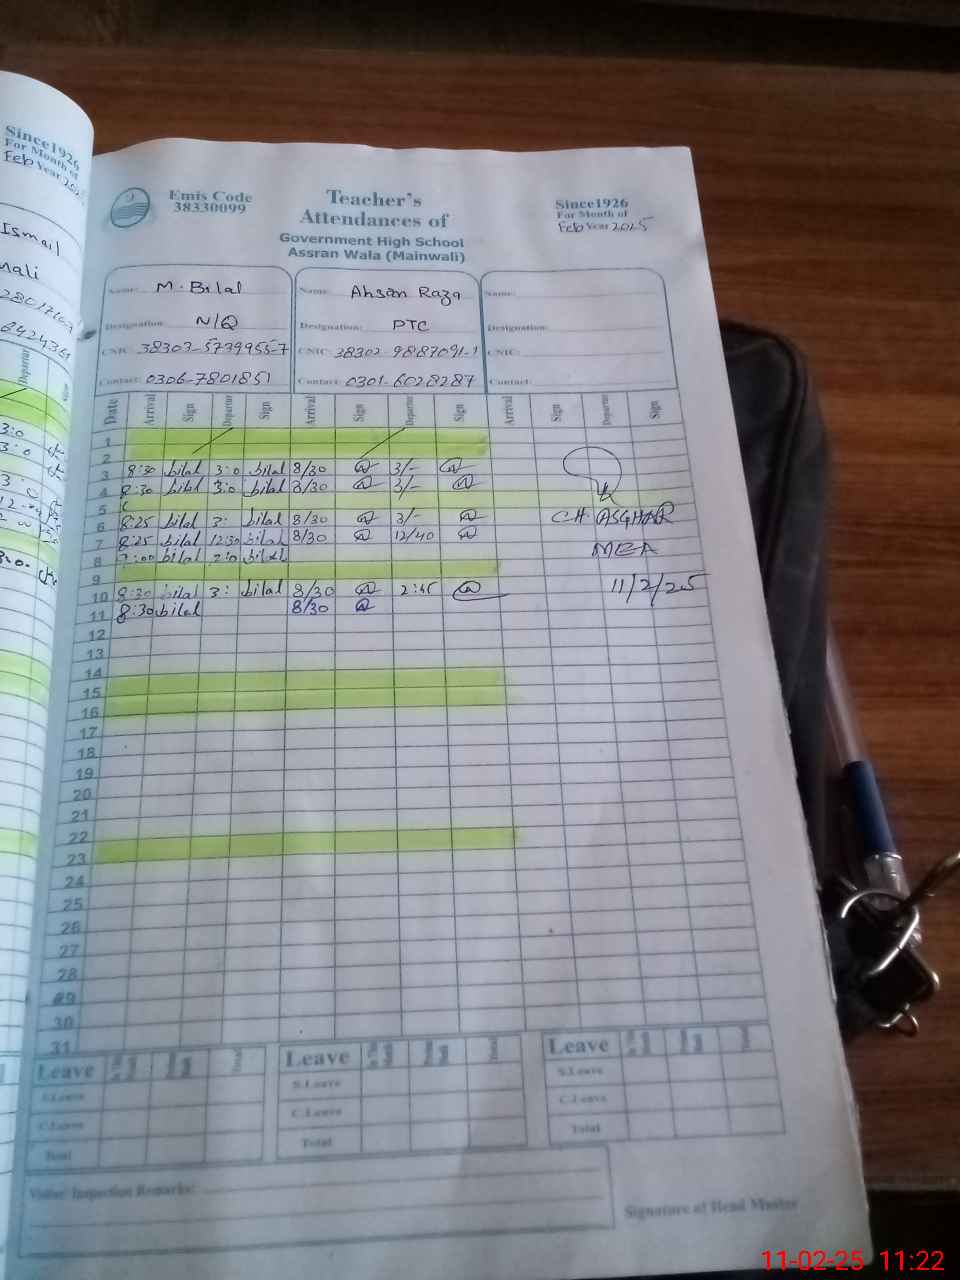 Since1926
For Month of
Feb Year 202
Ismail
nali
Emis Code
38330099
Teacher's
Attendances of
Government High School
Assran Wala (Mainwali)
Since1926
For Month of
Feb Year 2025
Name: M. Bilal
Designation: N/Q
CNIC: 38303-5739955-7
Contact: 0306-7801851
Name: Ahsan Raza
Designation: PTC
CNIC: 38302-9887091-1
Contact: 0301-6028287
Name:
Designation:
CNIC:
Contact:
Date Arrival Sign Departur Sign Arrival Sign Departur Sign Arrival Sign Departur Sign
1
2
3 8:30 bilal 3:0 bilal 8/30 3/-
4 8:30 bilal 3:0 bilal 8/30 3/-
5
6 8:25 bilal 3: bilal 8/30 3/-
7 8:25 bilal 12:30 bilal 8/30 12/40
8 bilal 2:0 bilal
9
10 8:30 bilal 3: bilal 8/30 2:45
11 8:30 bilal 8/30
CH. ASGHAR
MEA
11/2/25
12
13
14
15
16
17
18
19
20
21
22
23
24
25
26
27
28
29
30
31
Leave
S.Leave
C.Leave
Total
Leave
S.Leave
C.Leave
Total
Leave
S.Leave
C.Leave
Total
Visitor Inspection Remarks:
Signature of Head Master
11-02-25 11:22